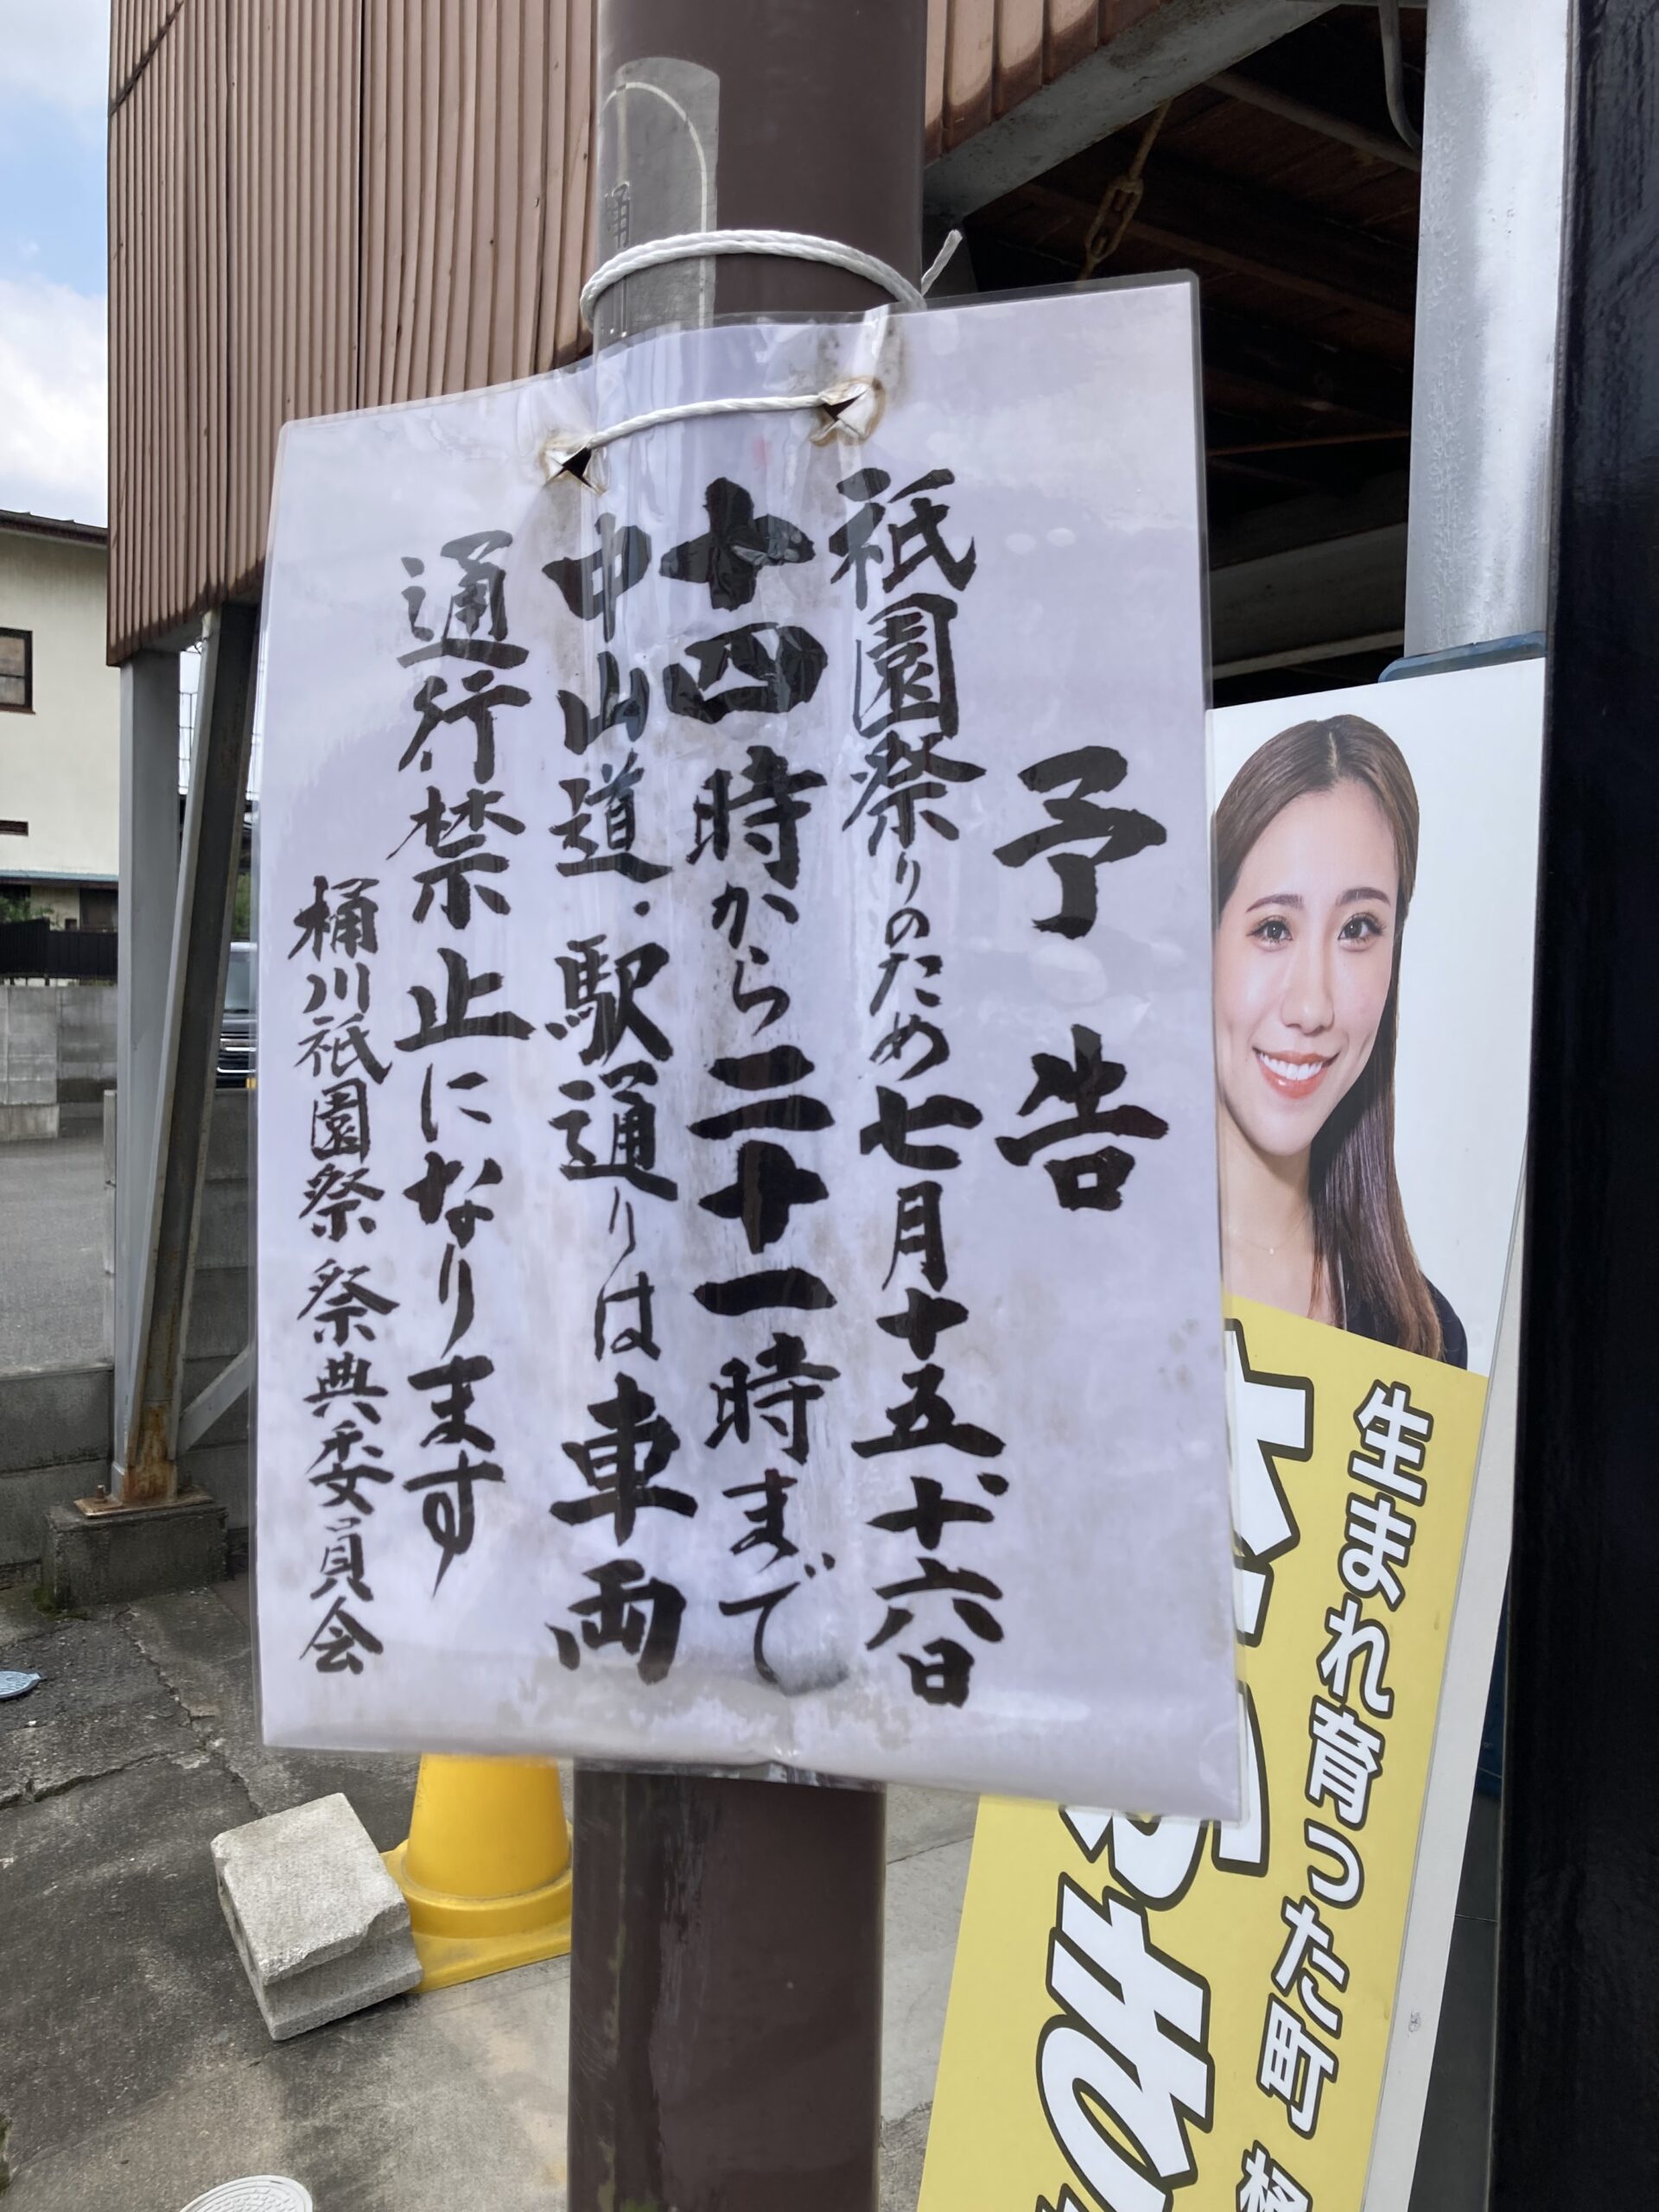 予告
祇園祭りのため七月十五、十六日
十四時から二十一時まで
中山道・駅通りは車両
通行禁止になります
桶川祇園祭 祭典委員会
生まれ育った町